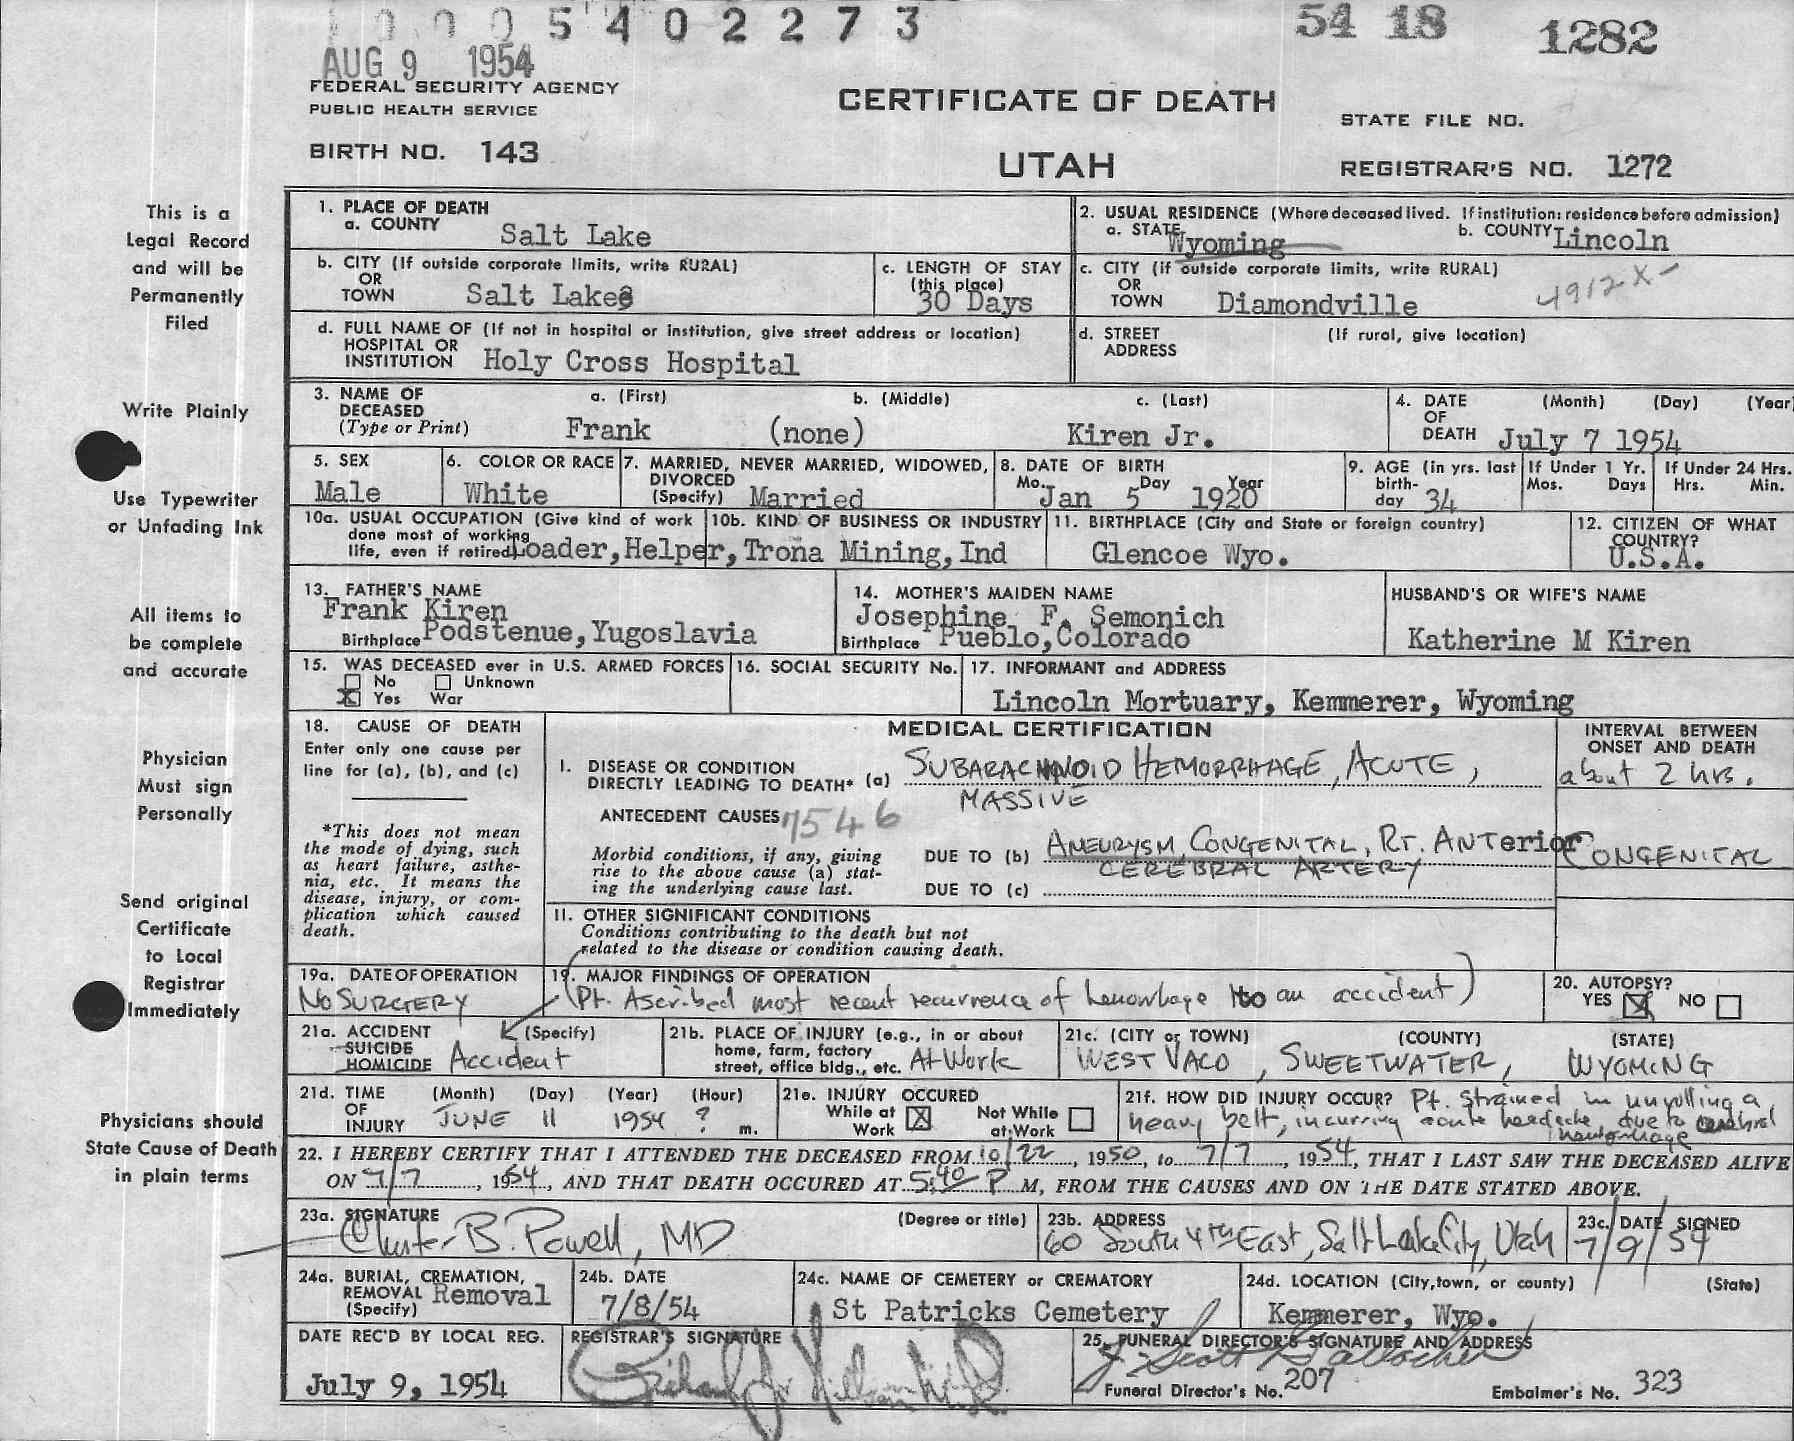 0005402273
54 18
1282
AUG 9 1954
FEDERAL SECURITY AGENCY
PUBLIC HEALTH SERVICE
CERTIFICATE OF DEATH
STATE FILE NO.
BIRTH NO. 143
UTAH
REGISTRAR'S NO. 1272
This is a
Legal Record
and will be
Permanently
Filed
Write Plainly
Use Typewriter
or Unfading Ink
All items to
be complete
and accurate
Physician
Must sign
Personally
Send original
Certificate
to Local
Registrar
Immediately
Physicians should
State Cause of Death
in plain terms
1. PLACE OF DEATH
a. COUNTY Salt Lake
2. USUAL RESIDENCE (Where deceased lived. If institution: residence before admission)
a. STATE Wyoming b. COUNTY Lincoln
b. CITY (If outside corporate limits, write RURAL)
OR
TOWN Salt Lake
c. LENGTH OF STAY
(this place)
30 Days
c. CITY (If outside corporate limits, write RURAL)
OR
TOWN Diamondville
4912-X-
d. FULL NAME OF (If not in hospital or institution, give street address or location)
HOSPITAL OR
INSTITUTION Holy Cross Hospital
d. STREET (If rural, give location)
ADDRESS
3. NAME OF a. (First) b. (Middle) c. (Last)
DECEASED
(Type or Print) Frank (none) Kiren Jr.
4. DATE (Month) (Day) (Year
OF
DEATH July 7 1954
5. SEX
Male
6. COLOR OR RACE
White
7. MARRIED, NEVER MARRIED, WIDOWED,
DIVORCED
(Specify) Married
8. DATE OF BIRTH
Mo. Day Year
Jan 5 1920
9. AGE (in yrs. last
birth-
day 34
If Under 1 Yr.
Mos. Days
If Under 24 Hrs.
Hrs. Min.
10a. USUAL OCCUPATION (Give kind of work
done most of working
life, even if retired) Loader, Helper,
10b. KIND OF BUSINESS OR INDUSTRY
Trona Mining, Ind
11. BIRTHPLACE (City and State or foreign country)
Glencoe Wyo.
12. CITIZEN OF WHAT
COUNTRY?
U.S.A.
13. FATHER'S NAME
Frank Kiren
Birthplace Podstenue, Yugoslavia
14. MOTHER'S MAIDEN NAME
Josephine F. Semonich
Birthplace Pueblo, Colorado
HUSBAND'S OR WIFE'S NAME
Katherine M Kiren
15. WAS DECEASED ever in U.S. ARMED FORCES
No Unknown
X Yes War
16. SOCIAL SECURITY No.
17. INFORMANT and ADDRESS
Lincoln Mortuary, Kemmerer, Wyoming
18. CAUSE OF DEATH
Enter only one cause per
line for (a), (b), and (c)
*This does not mean
the mode of dying, such
as heart failure, asthe-
nia, etc. It means the
disease, injury, or com-
plication which caused
death.
MEDICAL CERTIFICATION
INTERVAL BETWEEN
ONSET AND DEATH
I. DISEASE OR CONDITION
DIRECTLY LEADING TO DEATH* (a) SUBARACHNOID HEMORRHAGE, ACUTE,
MASSIVE
about 2 hrs.
ANTECEDENT CAUSES 7546
Morbid conditions, if any, giving
rise to the above cause (a) stat-
ing the underlying cause last.
DUE TO (b) ANEURYSM, CONGENITAL, RT. ANTerior
CEREBRAL ARTERY
CONGENITAL
DUE TO (c)
II. OTHER SIGNIFICANT CONDITIONS
Conditions contributing to the death but not
related to the disease or condition causing death.
19a. DATE OF OPERATION
NO SURGERY
19. MAJOR FINDINGS OF OPERATION
(Pt. Ascribed most recent recurrence of hemorrhage to an accident)
20. AUTOPSY?
YES X NO
21a. ACCIDENT (Specify)
SUICIDE
HOMICIDE Accident
21b. PLACE OF INJURY (e.g., in or about
home, farm, factory
street, office bldg., etc. At Work
21c. (CITY or TOWN) (COUNTY) (STATE)
WEST VACO, SWEETWATER, WYOMING
21d. TIME (Month) (Day) (Year) (Hour)
OF
INJURY JUNE 11 1954 ? m.
21e. INJURY OCCURED
While at Work X Not While at Work
21f. HOW DID INJURY OCCUR? Pt. strained in unrolling a
heavy belt, incurring acute headache due to cerebral
hemorrhage
22. I HEREBY CERTIFY THAT I ATTENDED THE DECEASED FROM 10/22, 1950, to 7/7, 1954, THAT I LAST SAW THE DECEASED ALIVE
ON 7/7, 1954, AND THAT DEATH OCCURED AT 5:40 P M, FROM THE CAUSES AND ON THE DATE STATED ABOVE.
23a. SIGNATURE (Degree or title)
Chester B. Powell, MD
23b. ADDRESS
60 South 4th East, Salt Lake City, Utah
23c. DATE SIGNED
7/9/54
24a. BURIAL, CREMATION,
REMOVAL
(Specify) Removal
24b. DATE
7/8/54
24c. NAME OF CEMETERY or CREMATORY
St Patricks Cemetery
24d. LOCATION (City, town, or county) (State)
Kemmerer, Wyo.
DATE REC'D BY LOCAL REG.
July 9, 1954
REGISTRAR'S SIGNATURE
25. FUNERAL DIRECTOR'S SIGNATURE AND ADDRESS
Funeral Director's No. 207 Embalmer's No. 323